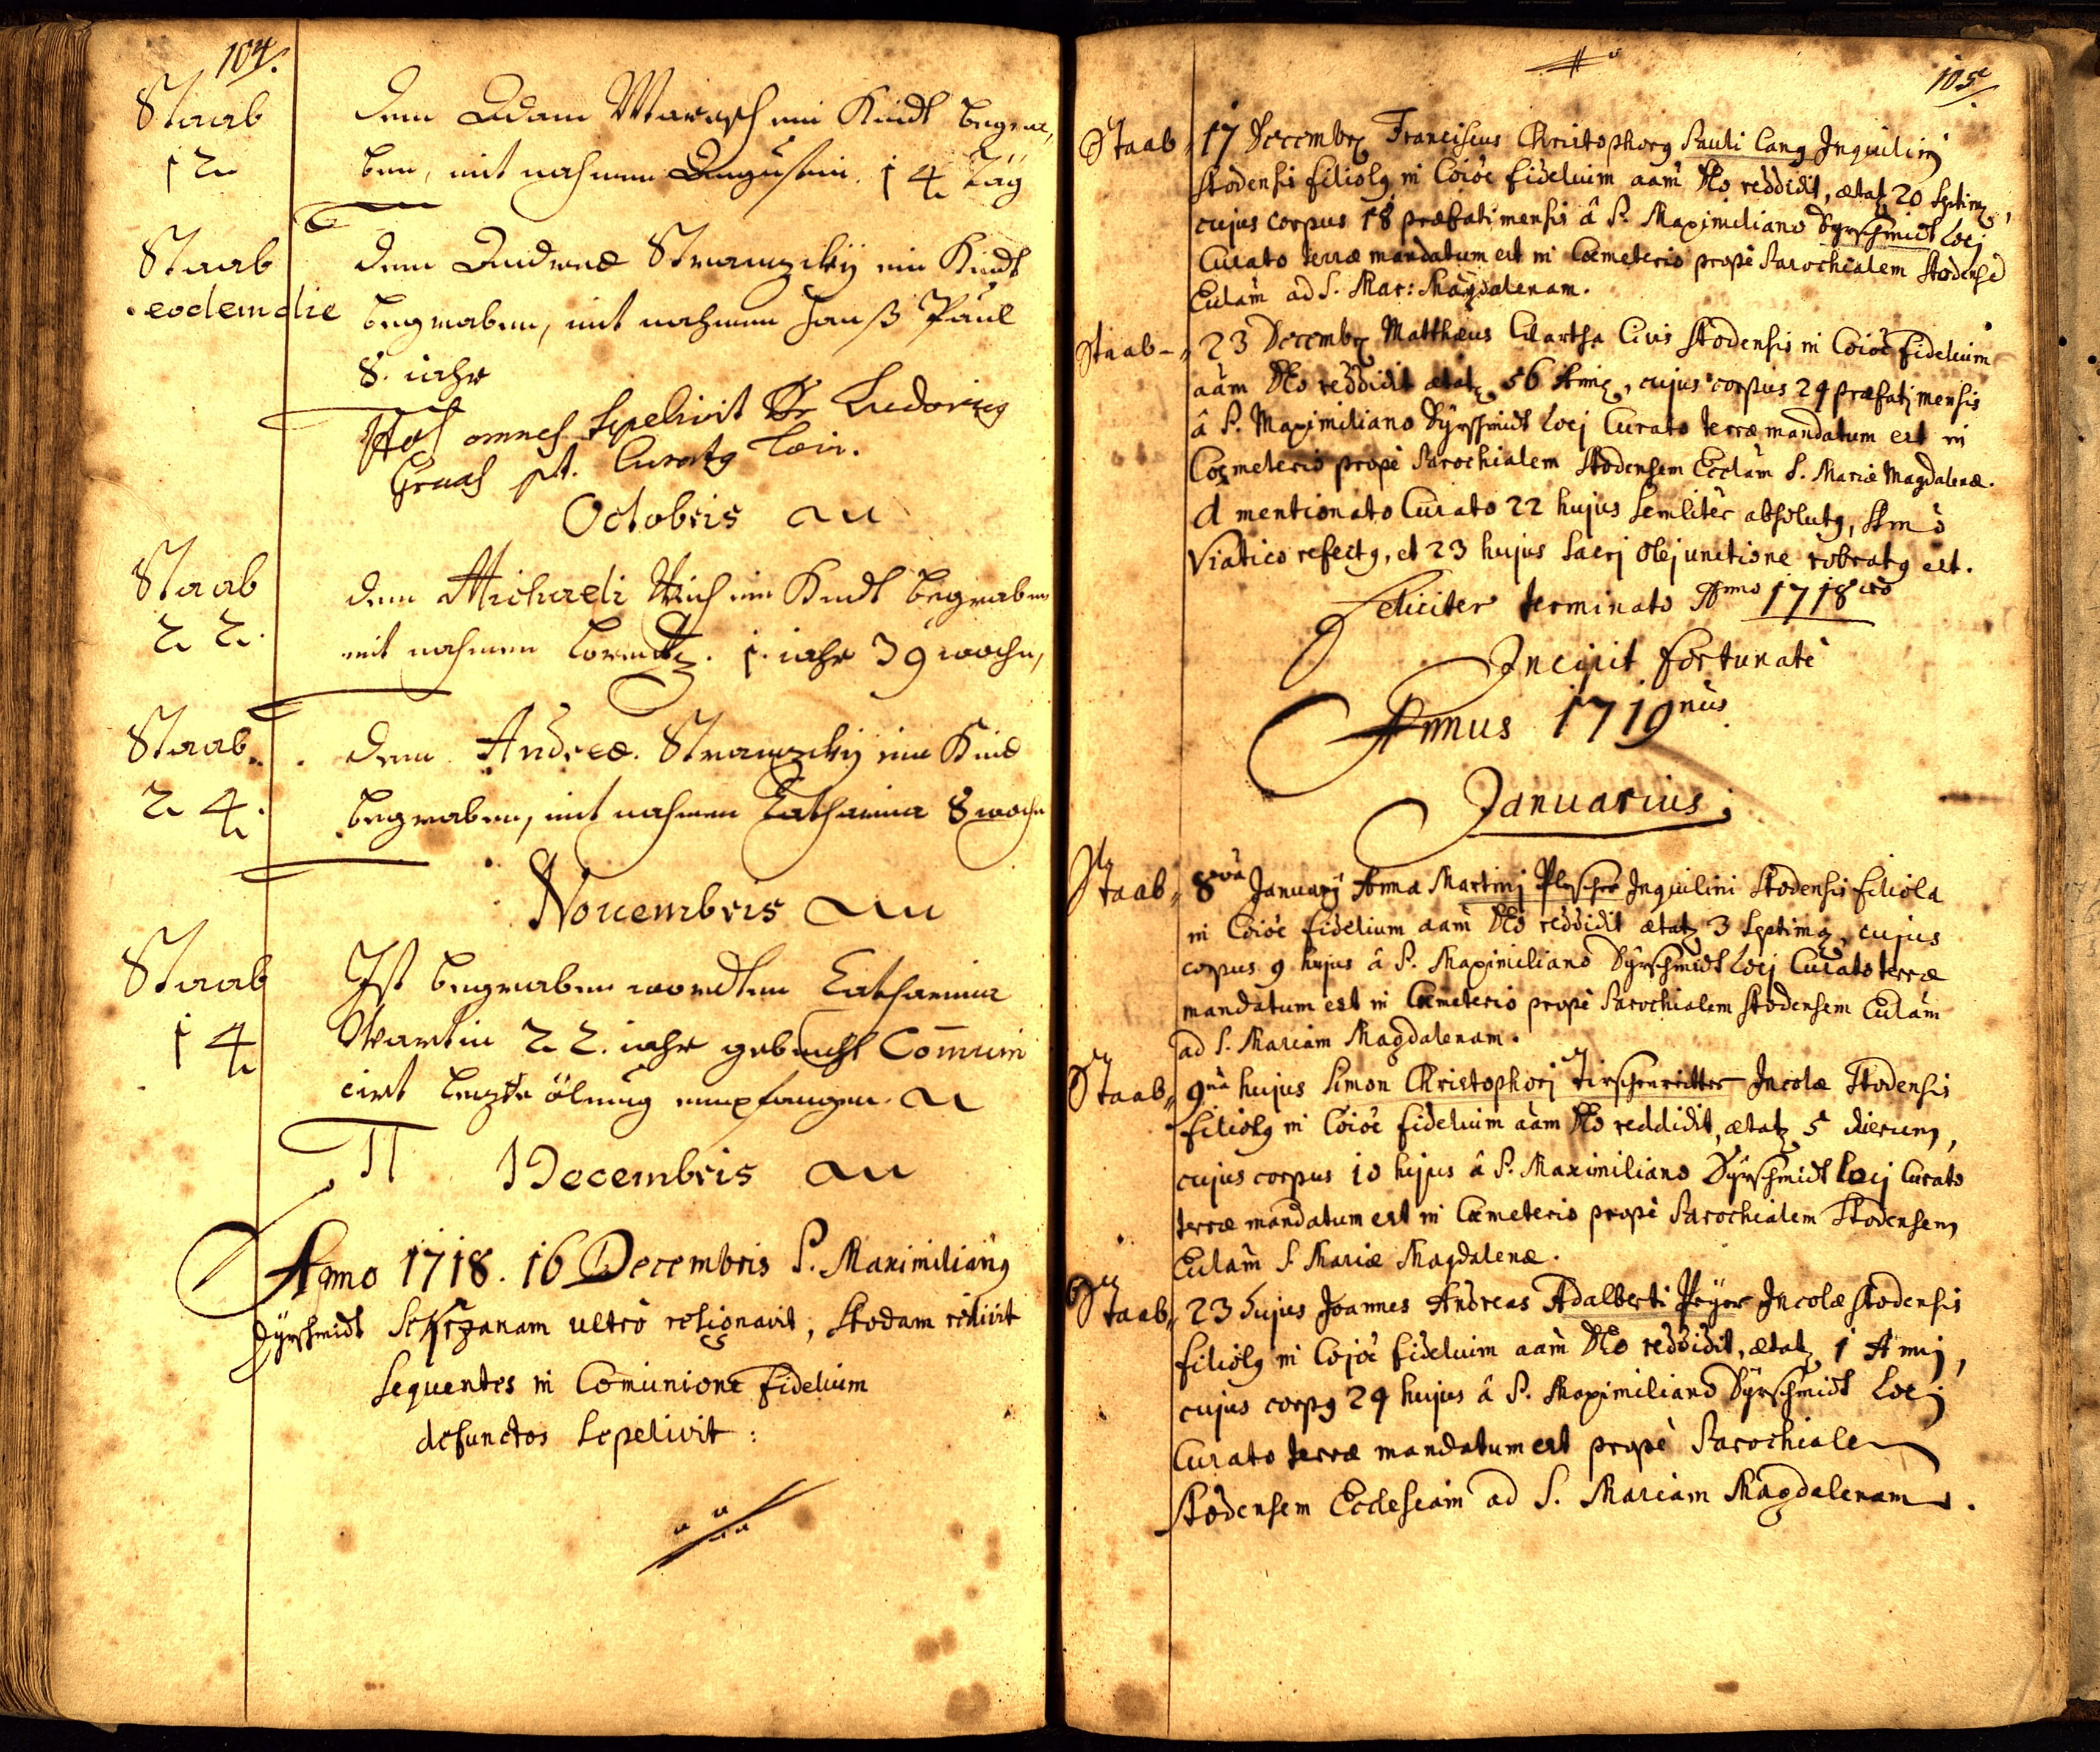 104.
Staab
12
dem Adam Maresch ein Kindt begra„
ben, mit nahmen Augustin. 14 täg
Staab
eodem die
dem Andreæ Stranzky ein Kindt
begraben, mit nahmen Hanß Paul
8. iahr
Hos omnes sepelivit Fr Ludovicg
Curatg Loci.
Octobris
Staab
22.
dem Michaeli ein Kindt begraben
mit nahmen Lorentz. 1. iahr 39 wochn,
Staab
24.
dem Andreæ Stranzky ein Kind
begraben, mit nahmen Catharina 8 wochn
Nouembris
Staab
14
Ist begraben wordten Catharina
Martin 22. iahr gebeicht Com̄uni
cirt letzte ölung empfangen.
Decembris
Anno 1718. 16 Decembris P. Maximiliang
Dÿrschmidt ultrò resignavit, Stodam redivit
sequentes in Comunione fidelium
defunctos sepelivit:
105
Staab„ 17 Decembr Franciscus Christophorg Pauli Lang Inquilinj
Stodensis filiolg in Coiōe fidelium aām Dēo reddidit, ætatz 20 Septimz,
cujus corpus 18 præfati mensis â P. Maximiliano Dÿrschmidt Locj
Curato terræ mandatum est in Cœmeterio propè Parochialem Stodensē
Ecclām ad S. Mar: Magdalenam.
Staab-„ 23 Decembr Matthæus Civis Stodensis in Coiōe fidelium
aām Dēo reddidit ætatz 56 Anniz, cujus corpus 24 præfatj mensis
â P. Maximiliano Dÿrschmidt Locj Curato terræ mandatum est in
Cœmeterio propè Parochialem Stodensem Ecclām S. Mariæ Magdalenæ.
A mentionato Curato 22 hujus Semlitèr absolutg, Smō
Viatico refectg, et 23 hujus Sacrj Olej unctione robratg est.
Feliciter terminato Anno 1718vo
Incipit fortunatè
Annus 1719nus.
Januarius;
Staab„ 8vâ Januarij Anna Martinj Plescher Inquilini Stodensis filiola
in Coiōe fidelium aām Dēo reddidit ætatz 3 Septimz, cujus
corpus 9 hujus â P. Maximiliano Dÿrschmidt Locj Curato terræ
mandatum est in Cœmeterio propè Parochialem Stodensem Ecclām
ad S. Mariam Magdalenam.
Staab„ 9nâ hujus Simon Christophorj Tirschenreitter Incolæ Stodensis
filiolg in Coiōe fidelium aām Dēo reddidit, ætatz 5 dierum,
cujus corpus 10 hujus â P. Maximiliano Dÿrschmidt Locj Curato
terræ mandatum est in Cœmeterio propè Parochialem Stodensem
Ecclām S. Mariæ Magdalenæ.
Staab„ 23 hujus Joannes Andreas Adalberti Peÿer Incolæ Stodensis
filiolg in Cojōe fidelium aām Dēo reddidit, ætatz 1 Annj,
cujus corpg 24 hujus â P. Maximiliano Dÿrschmidt Locj
Curato terræ mandatum est propè Parochialem
Stodensem Ecclesiam ad S. Mariam Magdalenam.